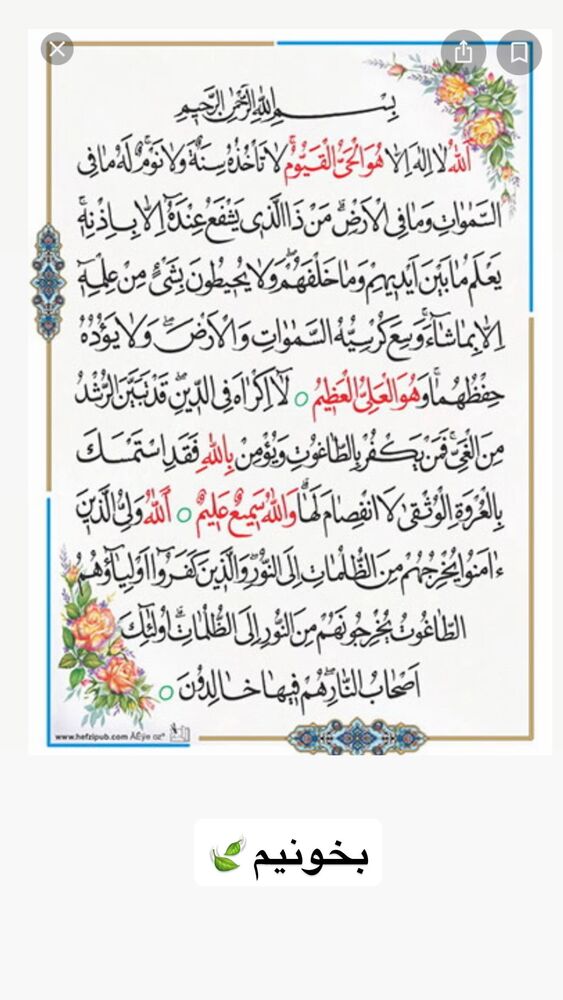 بِسْمِ اللهِ الرَّحْمٰنِ الرَّحِیمِ
اَللهُ لا اِلٰهَ اِلّا هُوَ الْحَیُّ الْقَیُّومُ لا تَأْخُذُهُ سِنَةٌ وَلا نَوْمٌ لَهُ ما فِی
السَّمٰواتِ وَما فِی الْاَرْضِ مَنْ ذَا الَّذِی یَشْفَعُ عِنْدَهُ اِلّا بِاِذْنِهِ
یَعْلَمُ ما بَیْنَ اَیْدِیهِمْ وَما خَلْفَهُمْ وَلا یُحِیطُونَ بِشَیْءٍ مِنْ عِلْمِهِ
اِلّا بِما شاءَ وَسِعَ کُرْسِیُّهُ السَّمٰواتِ وَالْاَرْضَ وَلا یَؤُدُهُ
حِفْظُهُما وَهُوَ الْعَلِیُّ الْعَظِیمُ لا اِکْراهَ فِی الدِّینِ قَدْ تَبَیَّنَ الرُّشْدُ
مِنَ الْغَیِّ فَمَنْ یَکْفُرْ بِالطّاغُوتِ وَیُؤْمِنْ بِاللهِ فَقَدِ اسْتَمْسَکَ
بِالْعُرْوَةِ الْوُثْقیٰ لَا انْفِصامَ لَها وَاللهُ سَمِیعٌ عَلِیمٌ اَللهُ وَلِیُّ الَّذِینَ
ءامَنُوا یُخْرِجُهُمْ مِنَ الظُّلُماتِ اِلَی النُّورِ وَالَّذِینَ کَفَرُوا اَوْلِیاؤُهُمُ
الطّاغُوتُ یُخْرِجُونَهُمْ مِنَ النُّورِ اِلَی الظُّلُماتِ اُولٰئِکَ
اَصْحابُ النّارِ هُمْ فِیها خالِدُونَ
www.hefzipub.com
بخونیم 🍃